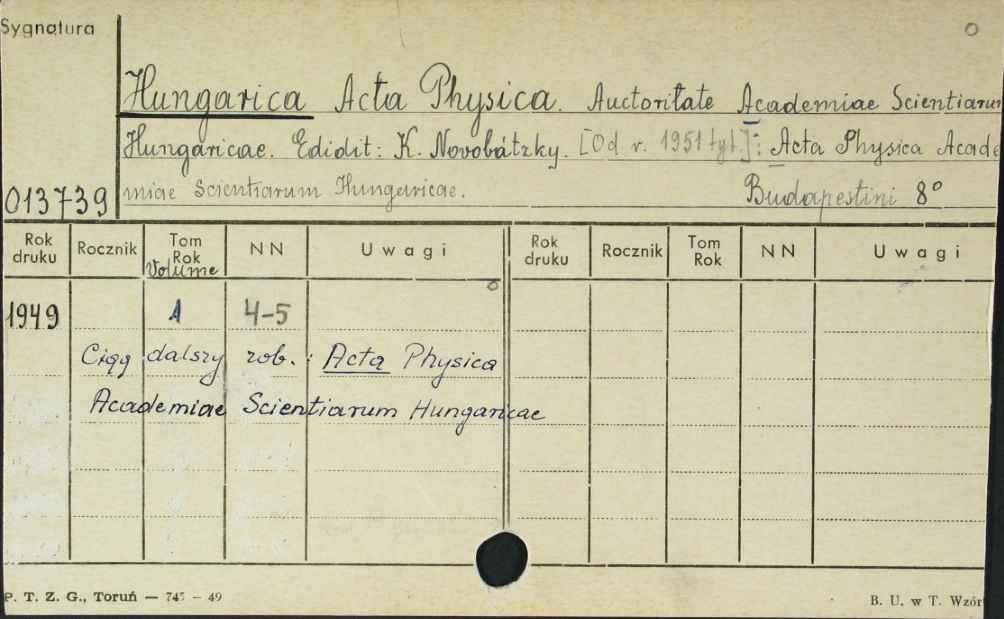 Sygnatura
Hungarica Acta Physica. Auctoritate Academiae Scientiarum
Hungaricae. Edidit: K. Novobátzky. [Od r. 1951 tyt.]: Acta Physica Acade
013739 miae Scientiarum Hungaricae. Budapestini 8°
Rok druku Rocznik Tom Rok Volume NN Uwagi Rok druku Rocznik Tom Rok NN Uwagi
1949 1 4-5
Ciąg dalszy zob.: Acta Physica
Academiae Scientiarum Hungaricae
P. T. Z. G., Toruń — 745 — 49 B. U. w T. Wzór